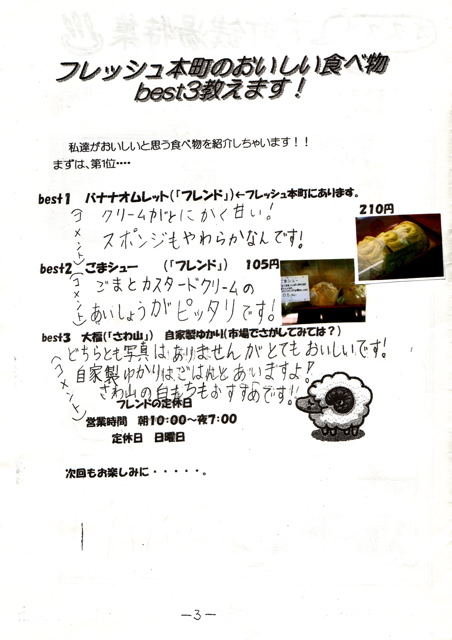 フレッシュ本町のおいしい食べ物
best3教えます！
私達がおいしいと思う食べ物を紹介しちゃいます！！
まずは、第1位････
best1 バナナオムレット(「フレンド」)←フレッシュ本町にあります。
(コメント)
クリームがとにかく甘い！
スポンジもやわらかなんです!
210円
best2 ごまシュー (「フレンド」) 105円
(コメント)
ごまとカスタードクリームの
あいしょうがピッタリです!
ごまシュー
best3 大福(「さわ山」) 自家製ゆかり(市場でさがしてみては？)
(コメント)
どちらとも写真はありませんがとてもおいしいです!
自家製ゆかりはごはんとあいますよ!
さわ山の白もちもおすすめです!!
フレンドの定休日
営業時間 朝10:00～夜7:00
定休日 日曜日
次回もお楽しみに・・・・・。
－3－